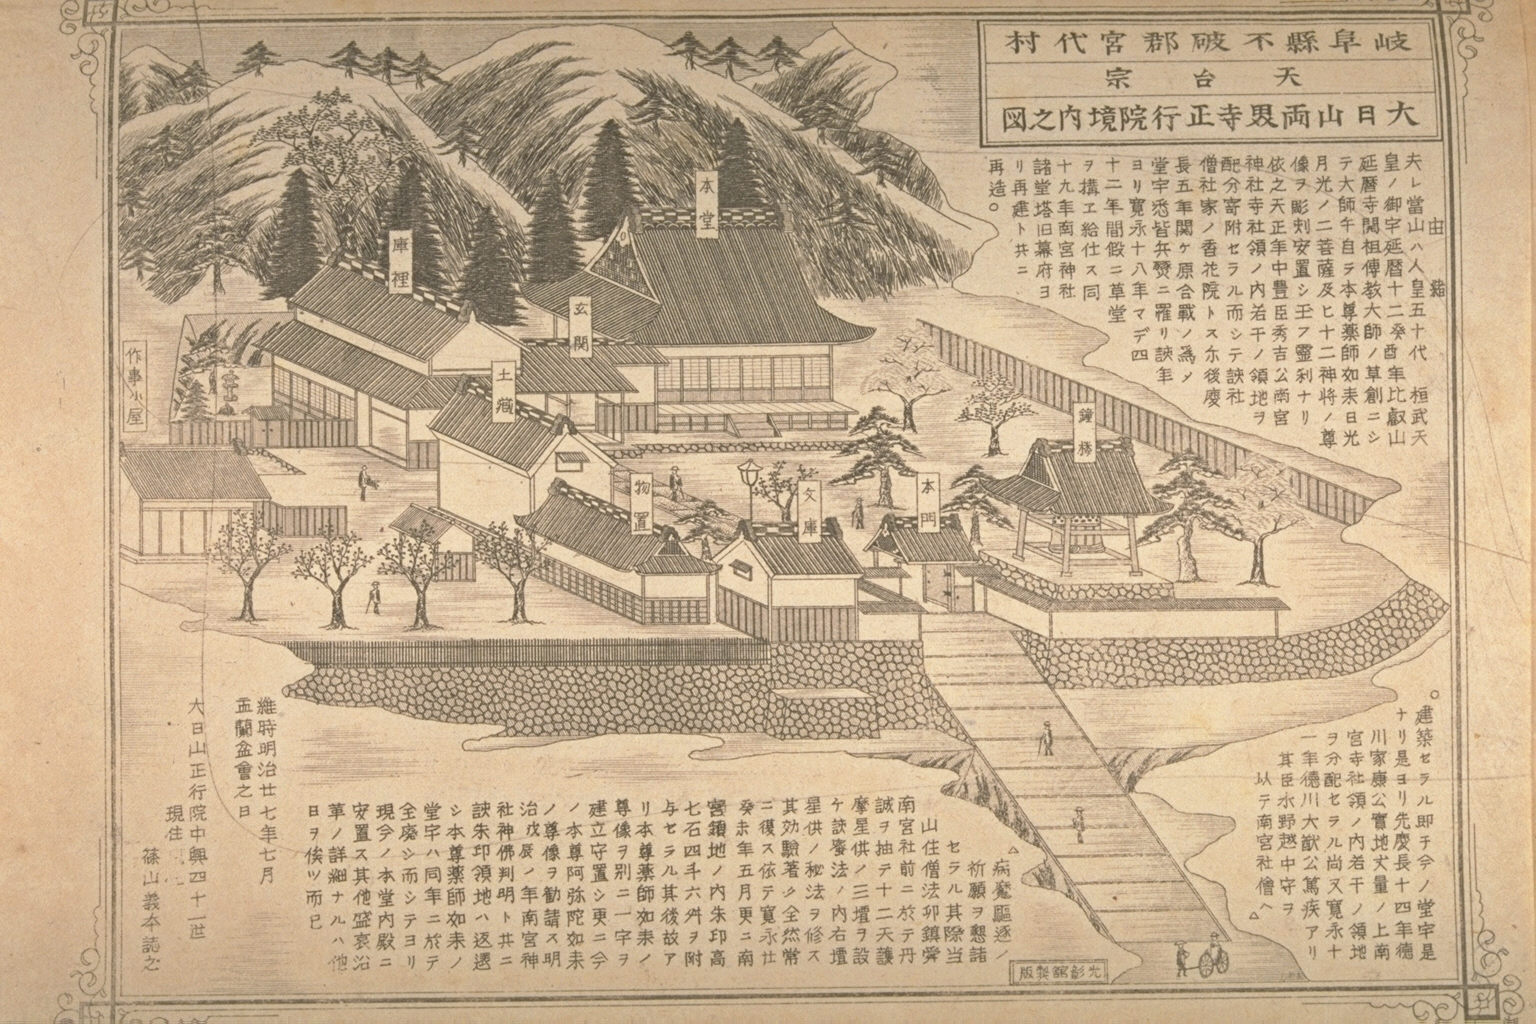 岐阜縣不破郡宮代村
天台宗
大日山両界寺正行院境内之図
由緒
夫レ當山ハ人皇五十代桓武天
皇ノ御宇延暦十二癸酉年比叡山
延暦寺開祖傳教大師ノ草創ニシ
テ大師手自ラ本尊薬師如来日光
月光ノ二菩薩及ヒ十二神将ノ尊
像ヲ彫刻安置シ玉フ霊刹ナリ
依之天正年中豊臣秀吉公南宮
神社寺社領ノ内若干ノ領地ヲ
配分寄附セラル而シテ該社
僧社家ノ香花院トス尓後慶
長五年関ケ原合戦ノ為メ
堂宇悉皆兵燹ニ罹リ該年
ヨリ寛永十八年マデ四
十二年間假ニ草堂
ヲ搆ヱ給仕ス同
十九年南宮神社
諸堂塔旧幕府ヨ
リ再建ト共ニ
再造○
本堂
庫裡
玄関
土蔵
作事小屋
物置
文庫
本門
鐘楼
○建築セラル即チ今ノ堂宇是
ナリ是ヨリ先慶長十四年徳
川家康公實地丈量ノ上南
宮寺社領ノ内若干ノ領地
ヲ分配セラル尚又寛永十
一年徳川大猷公篤疾アリ
其臣水野越中守ヲ
以テ南宮社僧ヘ△
△病魔驅逐ノ
祈願ヲ懇請
セラル其際当
山住僧法印鎮舜
南宮社前ニ於テ丹
誠ヲ抽テ十二天護
摩星供ノ三壇ヲ設
ケ該蜜法ノ内右壇
星供ノ秘法ヲ修ス
其効驗著シ全然常
ニ復ス依テ寛永廿
癸未年五月更ニ南
宮領地ノ内朱印高
七石四斗六舛ヲ附
与セラル其後故ア
リ本尊薬師如来ノ
尊像ヲ別ニ一宇ヲ
建立守置シ更ニ今
ノ本尊阿弥陀如来
ノ尊像ヲ勧請ス明
治戊辰ノ年南宮神
社神佛判明ト共ニ
該朱印領地ハ返還
シ本尊薬師如来ノ
堂宇ハ同年ニ於テ
全廃シ而シテヨリ
現今ノ本堂内殿ニ
安置ス其他盛衰沿
革ノ詳細ナルハ他
日ヲ俟ツ而已
維時明治廿七年七月
盂蘭盆會之日
大日山正行院中興四十一世
現住
篠山義本誌之
光彰舘製版